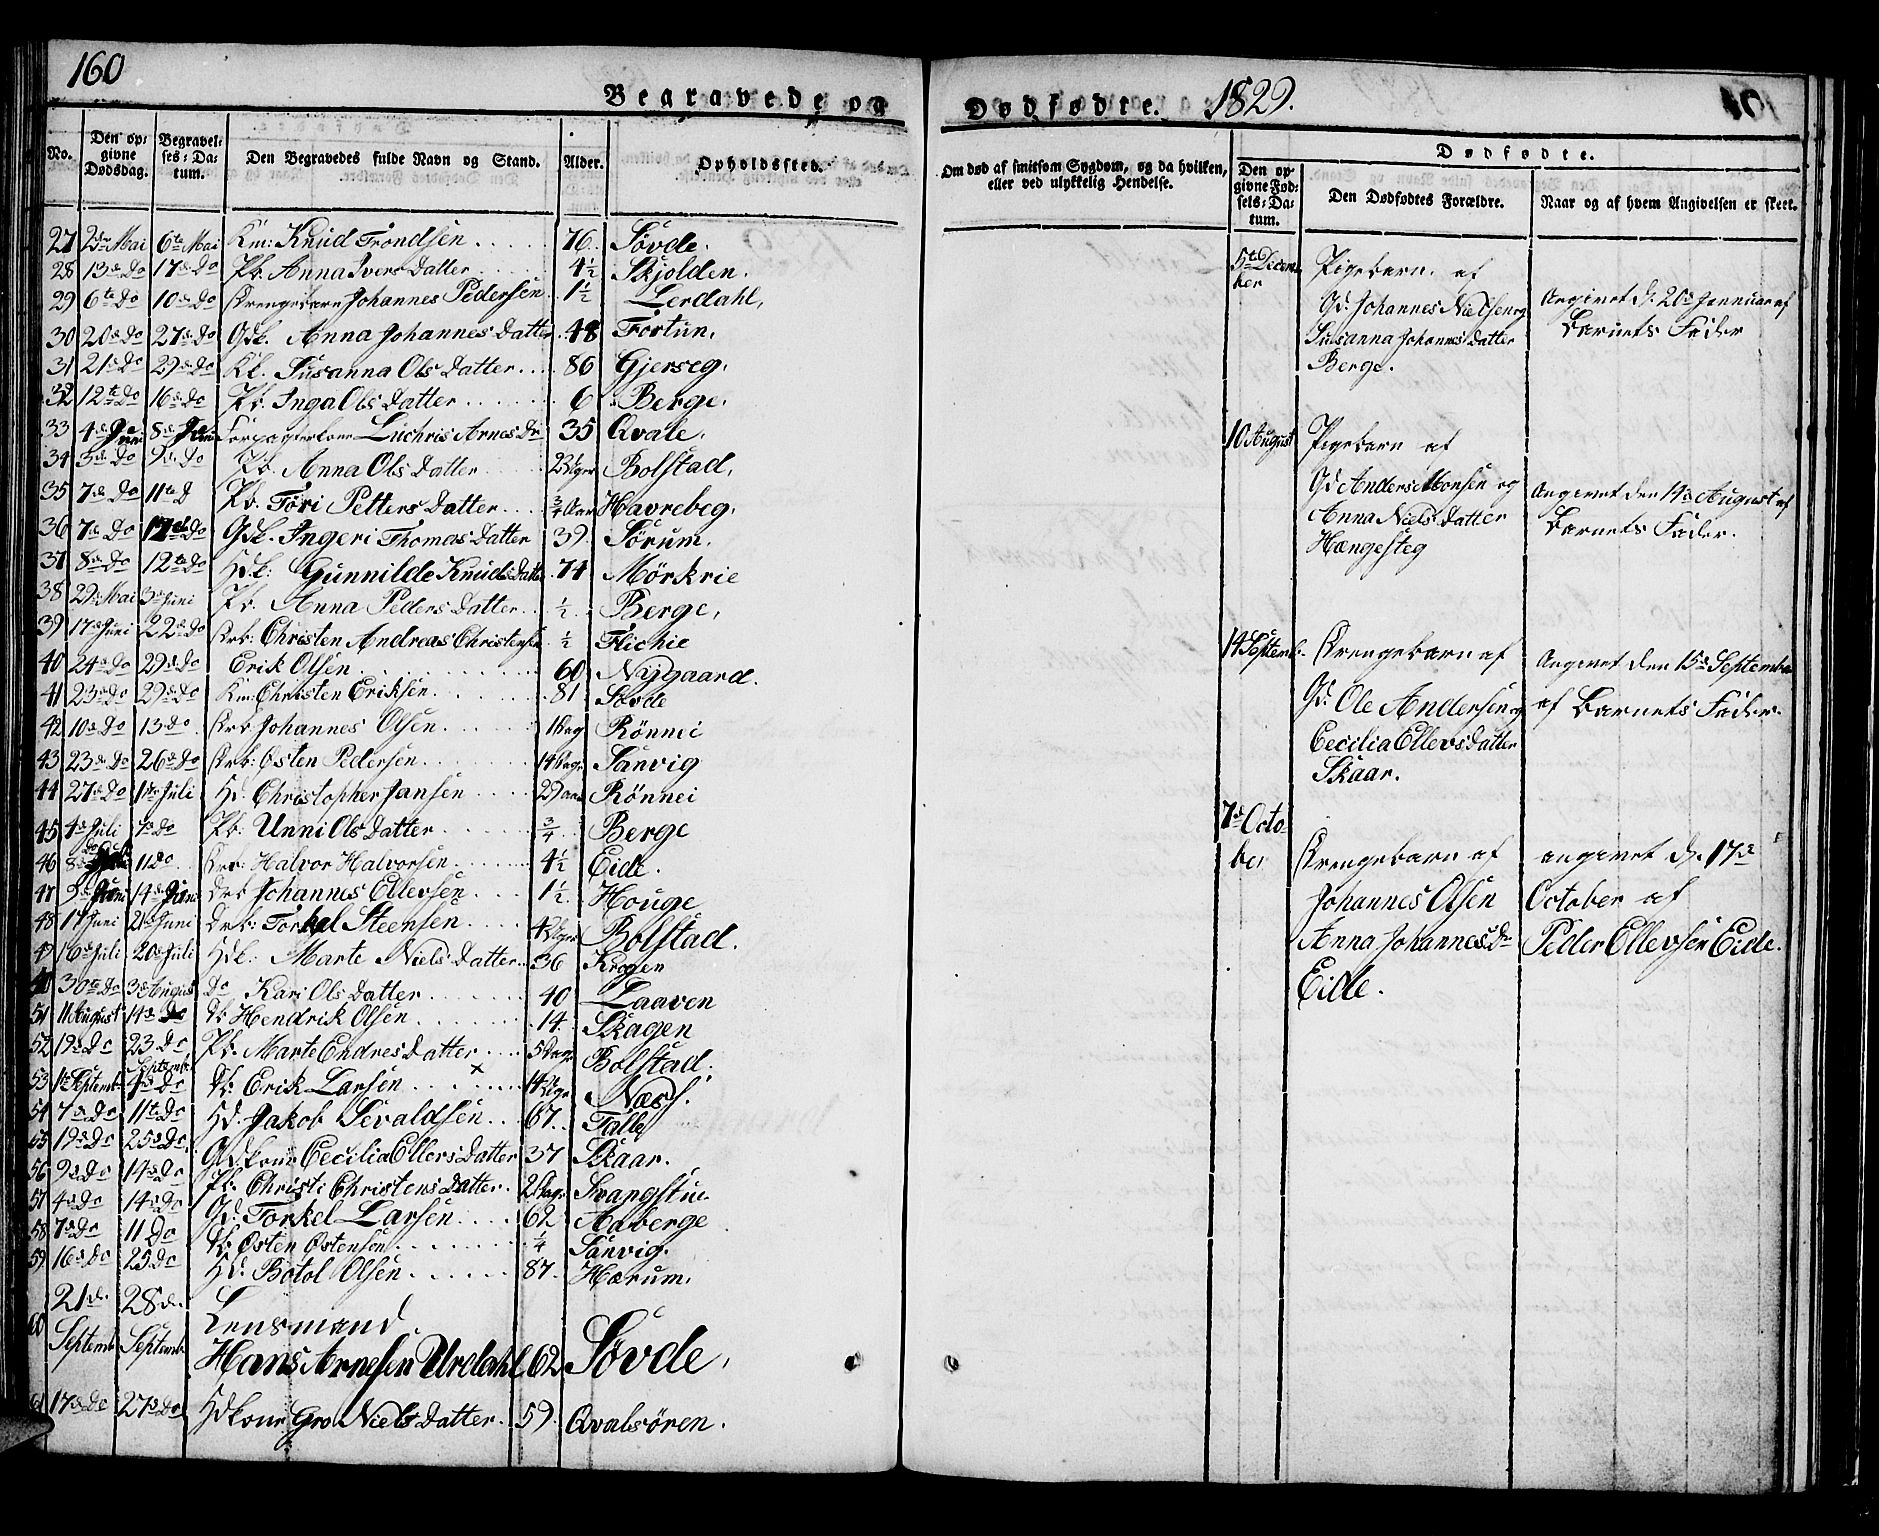 160
Begravede og
No.
Den op-
givne
Dødsdag.
Begravel-
ses-Da-
tum.
Den Begravedes fulde Navn og Stand.
Alder.
Opholdssted.
27 2den Mai 6te Mai Km: Knud Trondsen 76. Søvde.
28 13de Do 17de Do Pb. Anna Ivers Datter 4½ Skjolden.
29 6te Do 10de Do Drengebarn Johannes Pedersen 1½ Lerdahl,
30 20de Do 27de Do Gdk. Anna Johannes Datter 48 Fortun,
31 21de Do 29de Do Kk. Susanna Ols Datter 86 Gjerseg.
32 12te Do 16de Do Pb. Inga Ols Datter 6 Berge.
33 4de Juni 8de Juni Forpagterkone Luchris Arnes Dr 35 Qvale.
34 5de Do 9de Do Pb. Anna Ols Datter Uger Bolstad.
35 7de Do 11te D Pb. Töri Petters Datter ¾ Aar Havrebeg.
36 7de Do 12te Do Gdk. Ingeri Thomas Datter 39 Sörum.
37 8de Do 12te Do Hdk: Gunnilde Knuds Datter 74 Mörkrie
38 29de Mai 3de Juni Pb. Anna Peders Datter ½ Berge,
39 17de Juni 22de Do Drb: Christen Andreas Christensen ½ Flichie
40 24de Do 29de Do Erik Olsen 60 Nygaard.
41 23de Do 29de Do Km: Christen Eriksen 81. Søvde
42 10de Do 13 Do Drb Johannes Olsen 1 Dag Rönnei
43 23de Do 26de Do Drb: Østen Pedersen 14 Dage Sanvig
44 27de Do 1ste Juli Hd. Christopher Jansen 29 Aar Rönnei
45 4de Juli 7de Do Pb: Unni Ols Datter ¾ Berge
46 8de Do 11 Do Drb: Halvor Halvorsen 4½ Eide.
47 9de Juni 14de Juni Drb Johannes Ellevsen 1½ Houge
48 17 Juni 21de Juni Drb: Torkel Steensen Uger Bolstad.
49 16de Juli 20de Juli Hdk: Marte Niels Datter 36 Krogen
30te Do 3de August Do Kari Ols Datter 40 Laaven
51 11 August 14de Do Db Hendrik Olsen 14. Skagen
52 19de Do 23 Do Pb: Marte Endres Datter 5 Dage Bolstad.
53 1ste Septemb. Septemb. Do Db: Erik Larsen Dage Næss.
54 7de Do 11te Do Hd. Jakob Sevaldsen 67. Talle
55 19de Do 25de Do Gdkone Cecilia Ellers Datter 37 Skaar.
56 9de Do 14de Do Pb: Christi Christens Datter 2 Dage
57 4de Do 14de Do Gd: Torkel Larsen 62 Aaberge
58 7de Do 11 Do Db: Østen Østensön ¼ Sanvig.
59 16de Do 25 Do Hd: Botol Olsen 87. Hærum.
60 21de Septemb. 28de Septemb. Lensmand
Hans Arnesen Urdahl 62 Søvde,
61 17de Do 27de Do Hdkone Gro Niels Datter 59. Qvalsören.
Dødfødte. 1829.
Om død af smitsom Sygdom, og da hvilken,
eller ved ulykkelig Hendelse.
Dødfødte.
Den op-
givne Fød-
sels-Da-
tum.
Den Dødfødtes Forældre.
Naar og af hvem Angivelsen er skeet.
5te Decem-
ber
Pigebarn af
Gd. Johannes Nielsen og
Susanna Johannes Datter
Berge.
Angivet d. 20de Januar af
Barnets Fader
10 August
Pigebarn af
Gd Anders Monsen og
Anna Niels Datter
Hængesteg
Angivet den 14de August af
Barnets Fader.
14 Septemb.
Drengebarn af
Gd. Ole Andersen og
Cecilia Ellevs Datter
Skaar.
Angivet den 15de September
af Barnets Fader.
7de Octo-
ber
Drengebarn af
Johannes Olsen
Anna Johannes Dr
Eide.
angivet d. 17de
October af
Peder Ellevsen Eide.